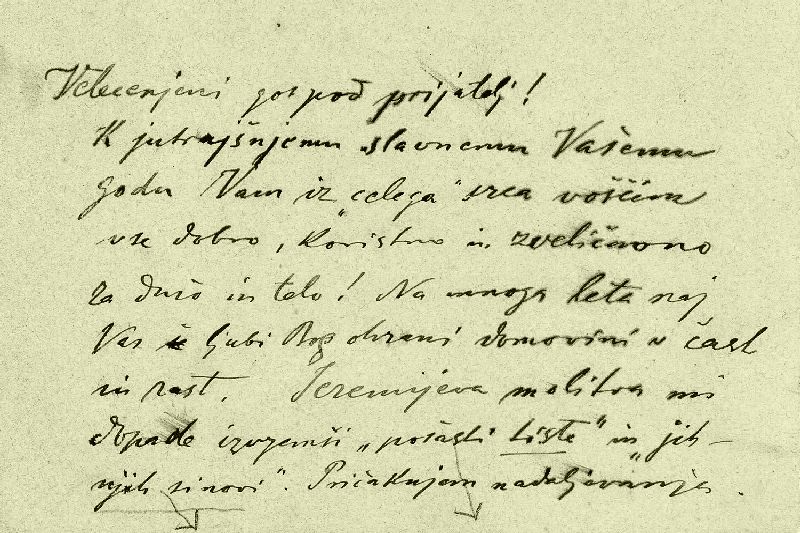 Velecenjeni gospod prijatelj!
K jutrajšnjemu slavnemu Vašemu
godu Vam iz "celega" srca voščim
vse dobro, koristno in zveličavno
za dušo in telo! Na mnoga leta naj
Vas ljubi Bog ohrani domovini v čast
in rast. Jeremijeva molitva mi
dopade izvzemši „pošasti tiste" in „jih-
njih sinovi". Pričakujem nadaljevanja.